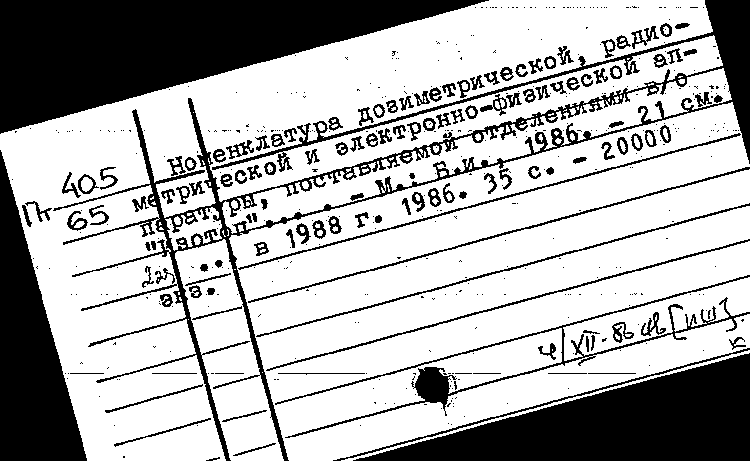 Номенклатура дозиметрической, радио-
метрической и электронно-физической ап-
паратуры, поставляемой отделениями в/о
"Изотоп"... . - М.: Б.и., 1986. - 21 см.
... в 1988 г. 1986. 35 с. - 20000
экз.
405
Пт 65
4/XII-86